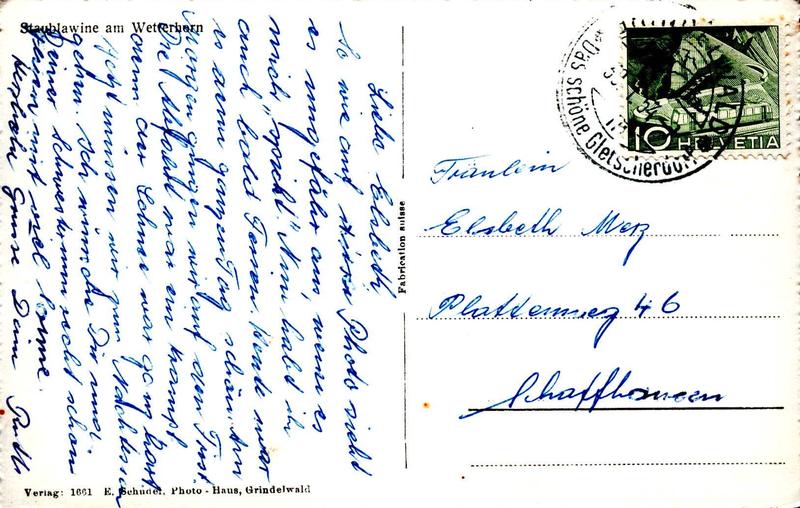 Staublawine am Wetterhorn
Liebe Elsbeth,
So wie auf dieser Photo sieht
es ungefähr aus, wenn es
mich „spickt". Nun habt ihr
auch bald Ferien. Heute war
es denn ganzen Tag schön. Am
Morgen gingen wir auf den First.
Die Abfahrt war ein Krampf
denn der Schnee war ganz hart
Jetzt müssen wir zum Nachtessen
gehen. Ich wünsche Dir und
Deiner Schwester nun recht schöne
Ferien mit viel Sonne.
Herzliche Grüsse Dein
Verlag: 1661 E. Schudel, Photo - Haus, Grindelwald
Fabrication suisse
Das schöne Gletscherdorf
10 HELVETIA
Fräulein
Elsbeth Merz
Plattenweg 46
Schaffhausen